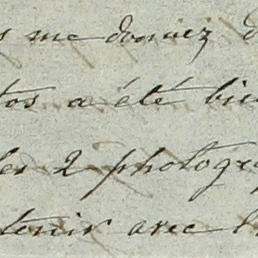 s me donniez d
tos a été bien
les 2 photogra
tenir avec l